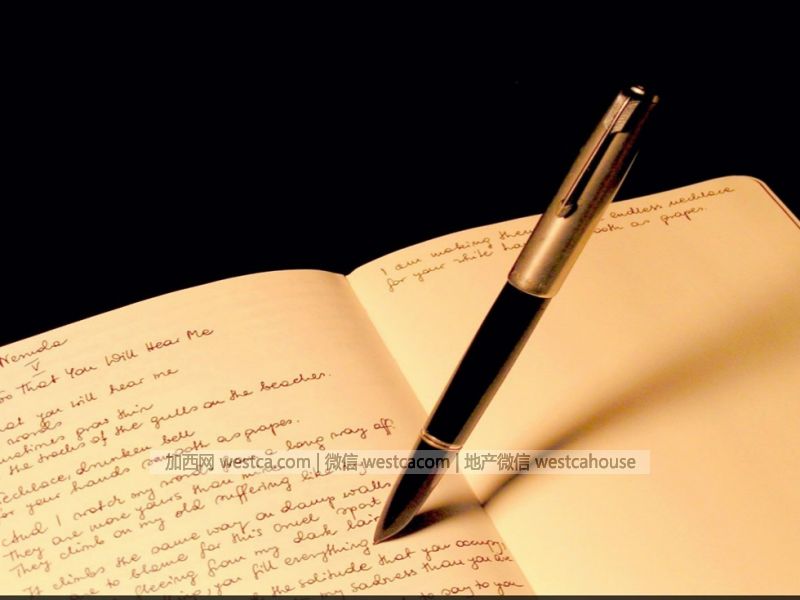 Neruda
V
So That You Will Hear Me
that you will hear me
words
sometimes grow thin
the tracks of the gulls on the beaches.
Necklace, drunken bell
for your hands smooth as grapes.
And I watch my words from a long way off.
They are more yours than mine.
They climb on my old suffering like ivy.
It climbs the same way on damp walls
to blame for this cruel sport
fleeing from my dark lair
you fill everything
the solitude that you occupy,
my sadness than you are
to say to you
I am making them endless necklace
for your white smooth as grapes.
加西网 westca.com | 微信 westcacom | 地产微信 westcahouse